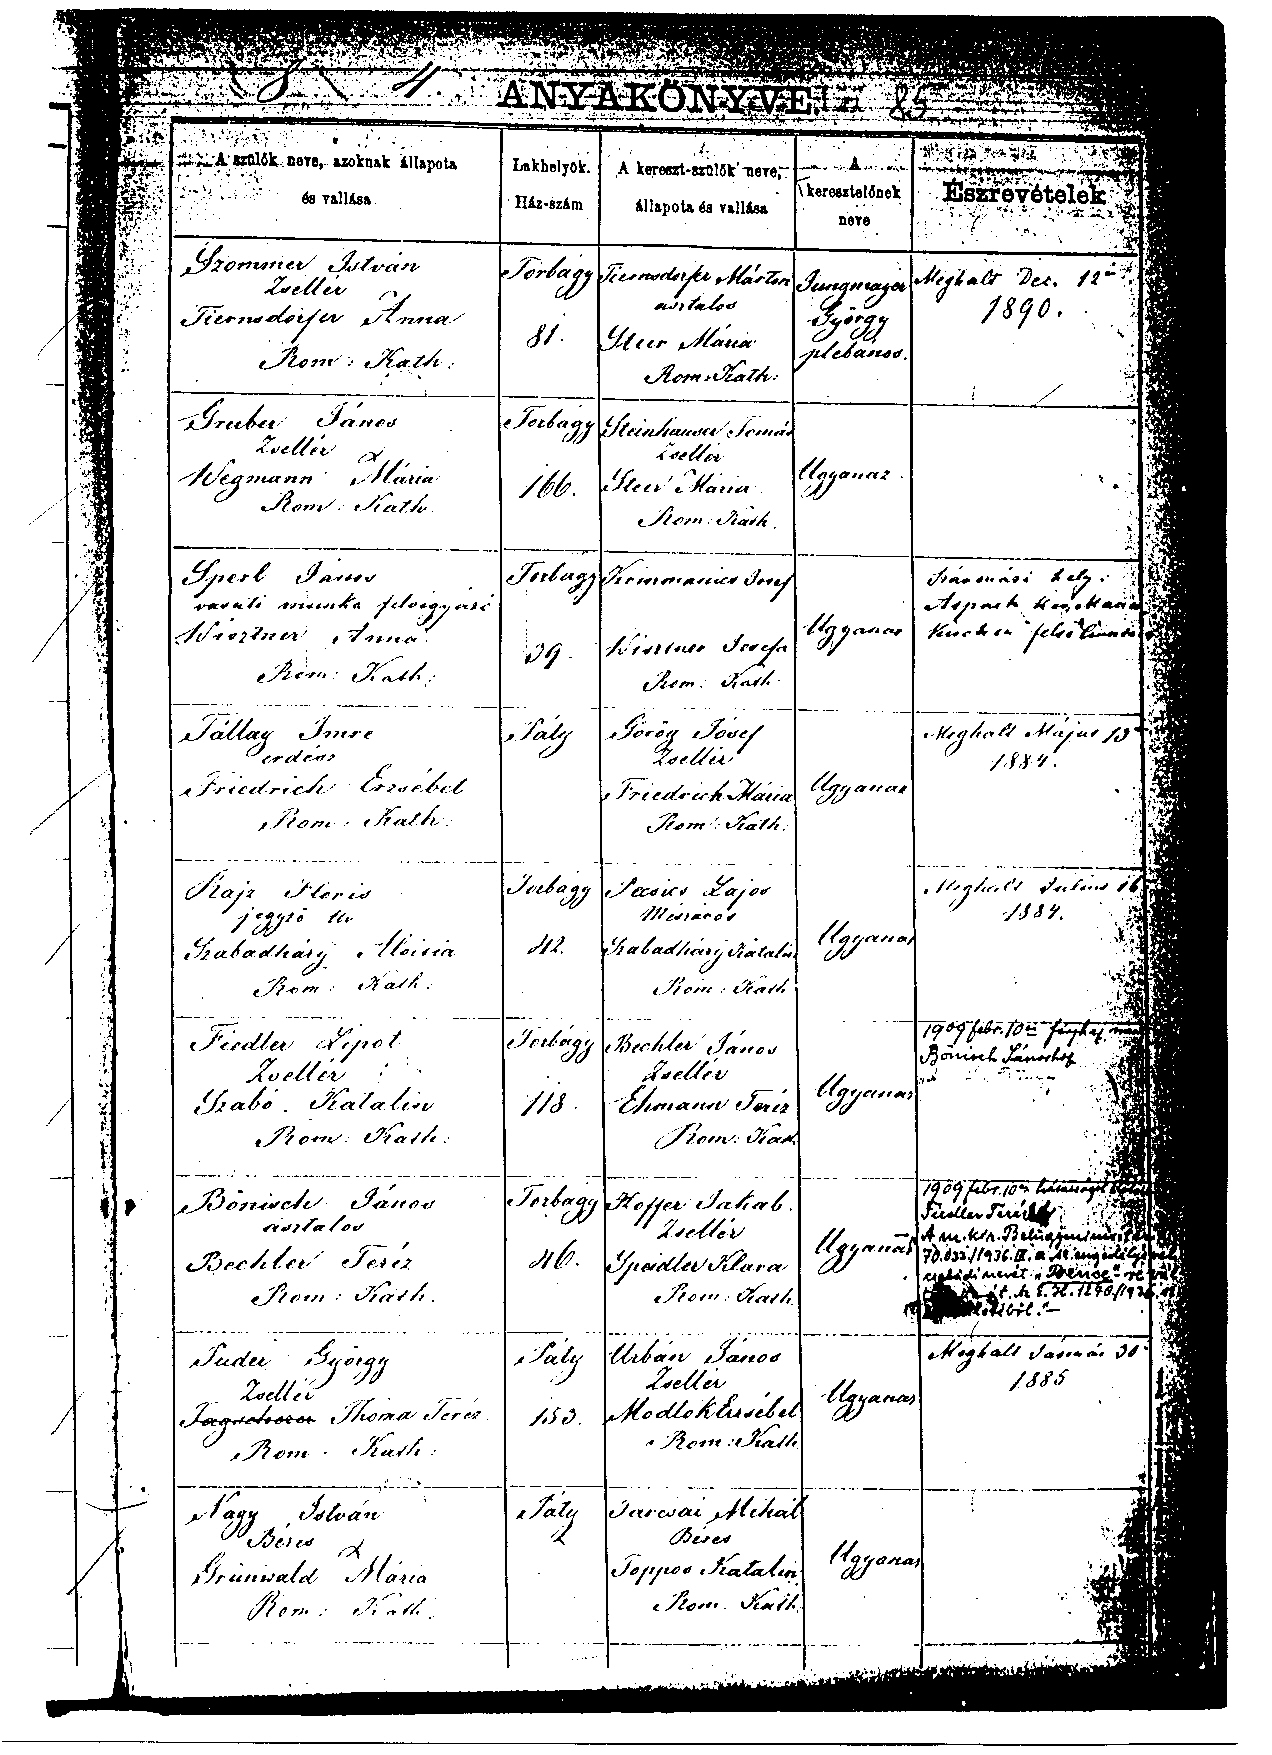 18 4. ANYAKÖNYVE. 85
A szülők neve, azoknak állapota
és vallása
Lakhelyök.
Ház-szám
A kereszt-szülők neve,
állapota és vallása
A
keresztelőnek
neve
Észrevételek
Szommer István
Zsellér
Tiernsdorfer Anna
Rom: Kath:
Torbágy
81.
Tiernsdorfer Márton
asztalos
Steer Mária
Rom: Kath:
Jungmayer
György
plebános.
Meghalt Dec. 12én
1890.
Gruber János
Zsellér
Wegmann Mária
Rom: Kath.
Torbágy
166.
Steinhauser Tomás
Zsellér
Steer Mária
Rom: Kath.
Ugyanaz
Sperl János
vasuti munka felvigyázó
Wisztner Anna
Rom: Kath:
Torbágy
39.
Josef
Wisztner Josefa
Rom: Kath.
Ugyanaz
hely:
Aspach
Tállay Imre
erdész
Friedrich Erzsébet
Rom: Kath:
Páty
Görög Jósef
Zsellér
Friedrich Mária
Rom: Kath:
Ugyanaz
Meghalt Május 13
1884.
Rajz Floris
jegyző Ur
Szabadháry Aloisia
Rom: Kath:
Torbágy
42.
Pacsics Lajos
Mészáros
Szabadháry Katalin
Rom: Kath
Ugyanaz
Meghalt Julius 16
1884.
Fiedler Lipot
Zsellér
Szabó Katalin
Rom: Kath:
Torbágy
118.
Bechler János
Zsellér
Ehmann Teréz
Rom: Kath.
Ugyanaz
1909 febr. 10én férjhez ment
Bönisch Jánoshoz
Bönisch János
asztalos
Bechler Teréz
Rom: Kath.
Torbágy
46.
Hoffer Jakab.
Zsellér
Speidler Klara
Rom: Kath
Ugyanaz
1909 febr. 10én házasságot
Fiedler Terézzel
A m. kir. Belügyminiszter
70.033/1936.III. a. sz. engedélyével
családi nevét "Bence"-re
1290/1936.
Tuder György
Zsellér
Tagscherer Thoma Teréz
Rom. Kath:
Páty
153.
Urbán János
Zsellér
Modlok Erzsébet
Rom: Kath
Ugyanaz
Meghalt Január 30
1885
Nagy István
Béres
Grünwald Mária
Rom: Kath.
Páty
2
Tarcsai Mihál
Béres
Toppos Katalin
Rom. Kath.
Ugyanaz